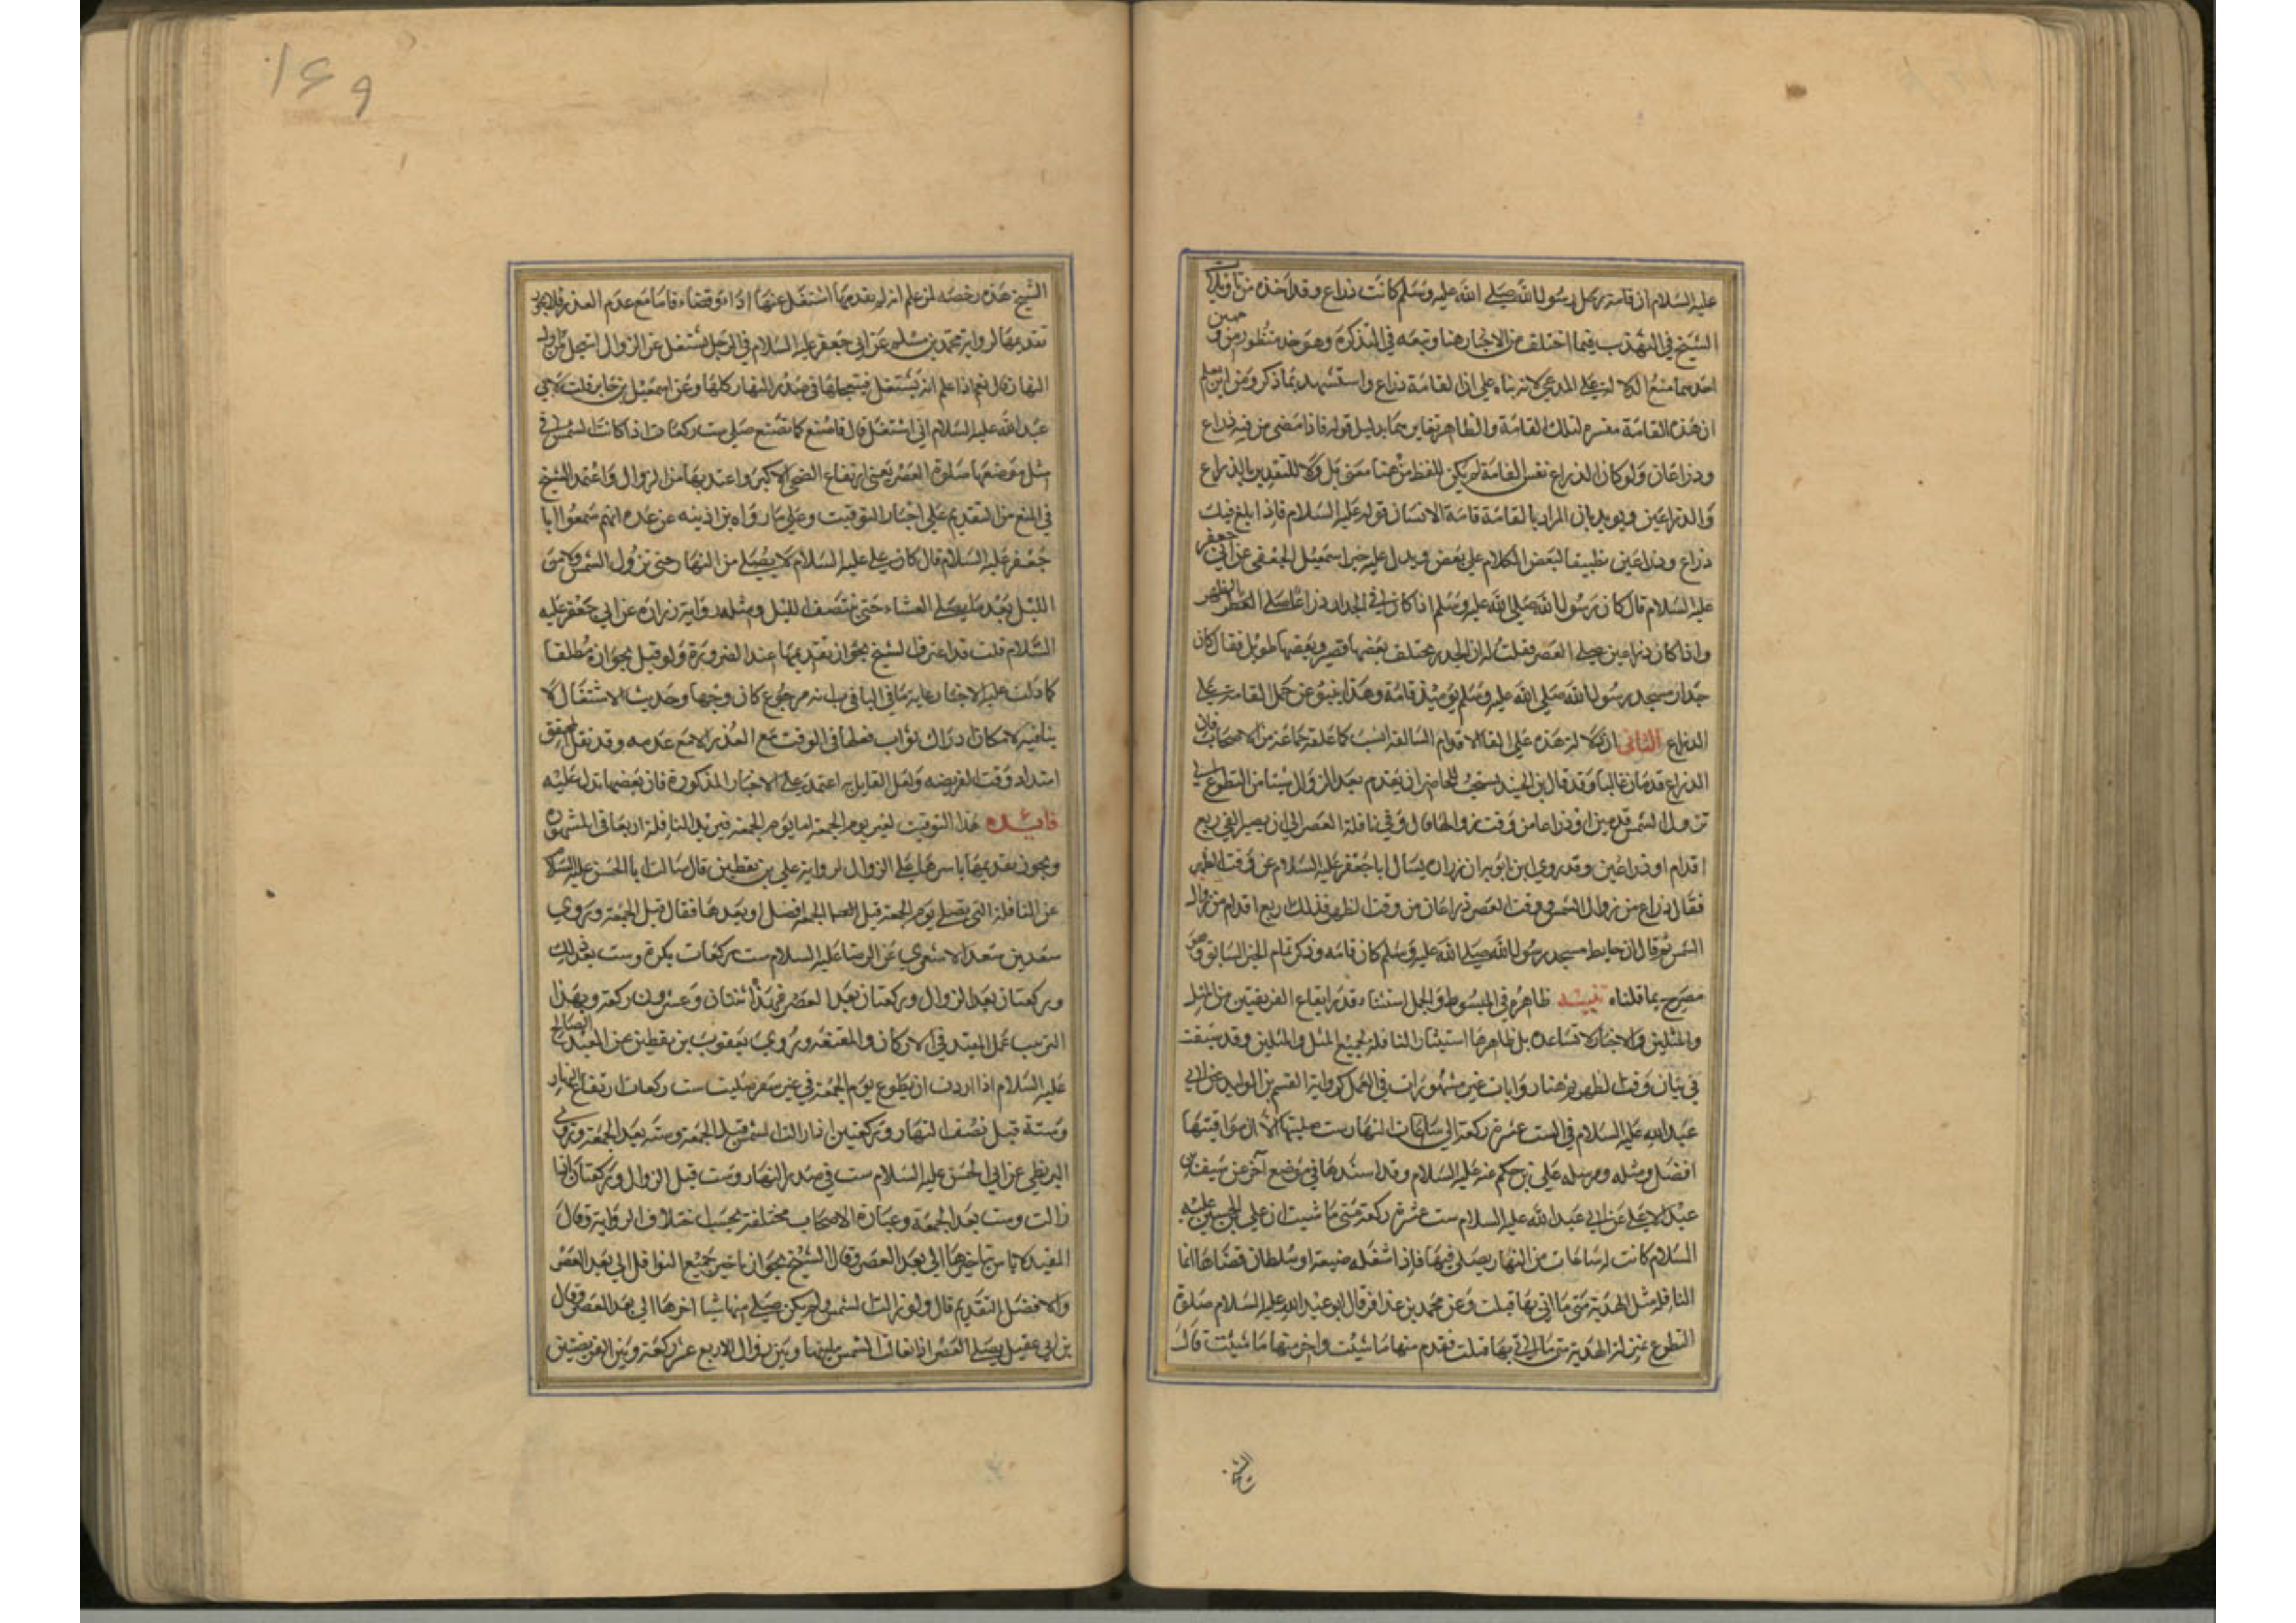 عليه السلام ان قامة رحل رسول الله صلى الله عليه وسلم كانت ذراع وقد اخذه من تاويلات
الشيخ في التهذيب فيما اختلف من الاخبار هنا وتبعه في التذكرة وهو خد منظور من وجهين
احدهما منع الدلالة على المدعى لانه بناء على ان القامة ذراع واستشهد بما ذكر ومن اين نعلم
ان هذه القامة مفسره لتلك القامة والظاهر تغايرهما بدليل قوله فاذا مضى من فيه ذراع
وذراعان ولو كان الذراع نفس القامة لم يكن للفظ من هنا معنى بل ولا للتقدير بالذراع
والذراعين ويويد بان المراد بالقامة قامة الانسان قوله عليه السلام فاذا بلغ فيك
ذراع وذراعين تطبيقا لبعض الكلام على بعض ويدل عليه خبر اسمعيل الجعفي عن ابي جعفر
عليه السلام قال كان رسول الله صلى الله عليه وسلم اذا كان الفي في الجدار ذراعا صلى الظهر
واذا كان ذراعين صلى العصر فقلت له ان الجدر يختلف بعضها قصير وبعضها طويل فقال كان
جدار مسجد رسول الله صلى الله عليه وسلم يومئذ قامة وهذا ينبو عن حمل القامة على
الذراع الثاني ان دلالة هذه على بقاء الاقدام السالفة انسب كما علقه جماعة من الاصحاب فان
الذراع قدمان غالبا وقد قال بن الجنيد يستحب للحاضر ان يقدم بعد الزوال شيئا من التطوع الى
تزول الشمس قدمين او ذراعا من وقت زوالها قال وفي نافلة العصر الى ان يصير الفي اربع
اقدام او ذراعين وقد روى ابن بابويه ان زراره يسال ابا جعفر عليه السلام عن وقت الظهر
فقال ذراع من زوال الشمس ووقت العصر ذراعان من وقت الظهر فذلك اربع اقدام من زوال
الشمس ثم قال ان حايط مسجد رسول الله صلى الله عليه وسلم كان قامه وذكر تمام الخبر السابق وهو
مصرح بما قلناه تنبيه ظاهره في المبسوط والجمل استثناء قدر ايقاع الفريضتين من المثل
والمثلين والاخبار لا تساعده بل ظاهرها استيثار النافلة بجميع المثل والمثلين وقد سبقت
في بيان وقت الظهر هنا روايات غير مشهورات في العمل كرواية القسم بن الوليد عن ابي
عبد الله عليه السلام في الست عشرة ركعة اي ساعات النهار ست صليتها الا ان مواقيتها
افضل ومثله ومرسله علي بن حكم عنه عليه السلام وقد اسندها في موضع آخر عن سيف بن
عبد الاعلى عن ابي عبد الله عليه السلام ست عشرة ركعة متى ما شيت ان علي بن الحسين عليه
السلام كانت له ساعات من النهار يصلي فيها فاذا اشغله ضيعة او سلطان قضاها انما
النافلة مثل الهدية متى ما اتي بها قبلت وعن محمد بن عذافر قال ابو عبد الله عليه السلام صلوة
التطوع بمنزلة الهدية متى ما اتي بها قبلت فقدم منها ما شئت واخر منها ما شئت قال
الشيخ
١٤٩
الشيخ هذه رخصه لمن علم انه لم يقدمها اشتغل عنها اداء وقضاء فاما مع عدم العذر فلا يجوز
تقديمها لرواية محمد بن مسلم عن ابي جعفر عليه السلام في الرجل يشتغل عن الزوال ايتعجل من اول
النهار قال نعم اذا علم انه يشتغل فيتعجلها في صدر النهار كلها وعن اسمعيل بن جابر قلت لابي
عبد الله عليه السلام اني اشتغل قال فاصنع كما تصنع صلي ست ركعات اذا كانت الشمس في
مثل موضعها صلوة العصر يعني ارتفاع الضحى الاكبر واعتد بها من الزوال واعتمد الشيخ
في المنع من التقديم على اخبار التوقيت وعلى ما رواه بن اذينه عن عده انهم سمعوا ابا
جعفر عليه السلام قال كان علي عليه السلام لا يصلي من النهار حتى تزول الشمس ولا من
الليل بعد ما يصلي العشاء حتى ينتصف الليل ومثله رواية زرارة عن ابي جعفر عليه
السلام قلت قد اعترف الشيخ بجواز تقديمها عند الضرورة ولو قيل بجوازه مطلقا
كما دلت عليه الاخبار غاية ما في الباب انه مرجوع كان وجها وحديث الاشتغال لا
ينافيه لامكان ادراك ثواب فعلها في الوقت مع العذر لا مع عدمه وقد نقل المحقق
امتداد وقت الفريضه ولعل القايل به اعتمد على الاخبار المذكورة فان بعضها تدل عليه
فايده هذا التوقيت لغير يوم الجمعة اما يوم الجمعة فيزيد النافلة اربعا في المشهور
ويجوز تقديمها باسرها على الزوال لرواية علي بن يقطين قال سالت ابا الحسن عليه السلام
عن النافلة التي تصلى يوم الجمعة قبل الجمعة افضل او بعدها فقال قبل الجمعة وروى
سعد بن سعد الاشعري عن الرضا عليه السلام ست ركعات بكرة وست بعد ذلك
وركعتان بعد الزوال وركعتان بعد العصر فهذا اثنتان وعشرون ركعة وبهذا
الترتيب عمل المفيد في الاركان والمقنعه وروى يعقوب بن يقطين عن العبد الصالح
عليه السلام اذا اردت ان تطوع يوم الجمعة في غير سفر صليت ست ركعات ارتفاع النهار
وستة قبل نصف النهار وركعتين اذا زالت الشمس قبل الجمعة وستة بعد الجمعة وروى
البزنطي عن ابي الحسن عليه السلام ست في صدر النهار وست قبل الزوال وركعتان اذا
زالت وست بعد الجمعة وعبارة الاصحاب مختلفة بحسب اختلاف الرواية وقال
المفيد لا باس بتاخيرها الى بعد العصر وقال الشيخ يجوز تاخير جميع النوافل الى بعد العصر
والافضل التقديم قال ولو زالت الشمس ولم يكن صلى منها شيا اخرها الى بعد العصر وقال
بن ابي عقيل يصلي العصر اذا تعالت الشمس ما بينها وبين زوال الاربع عشر ركعة وبين الفريضتين